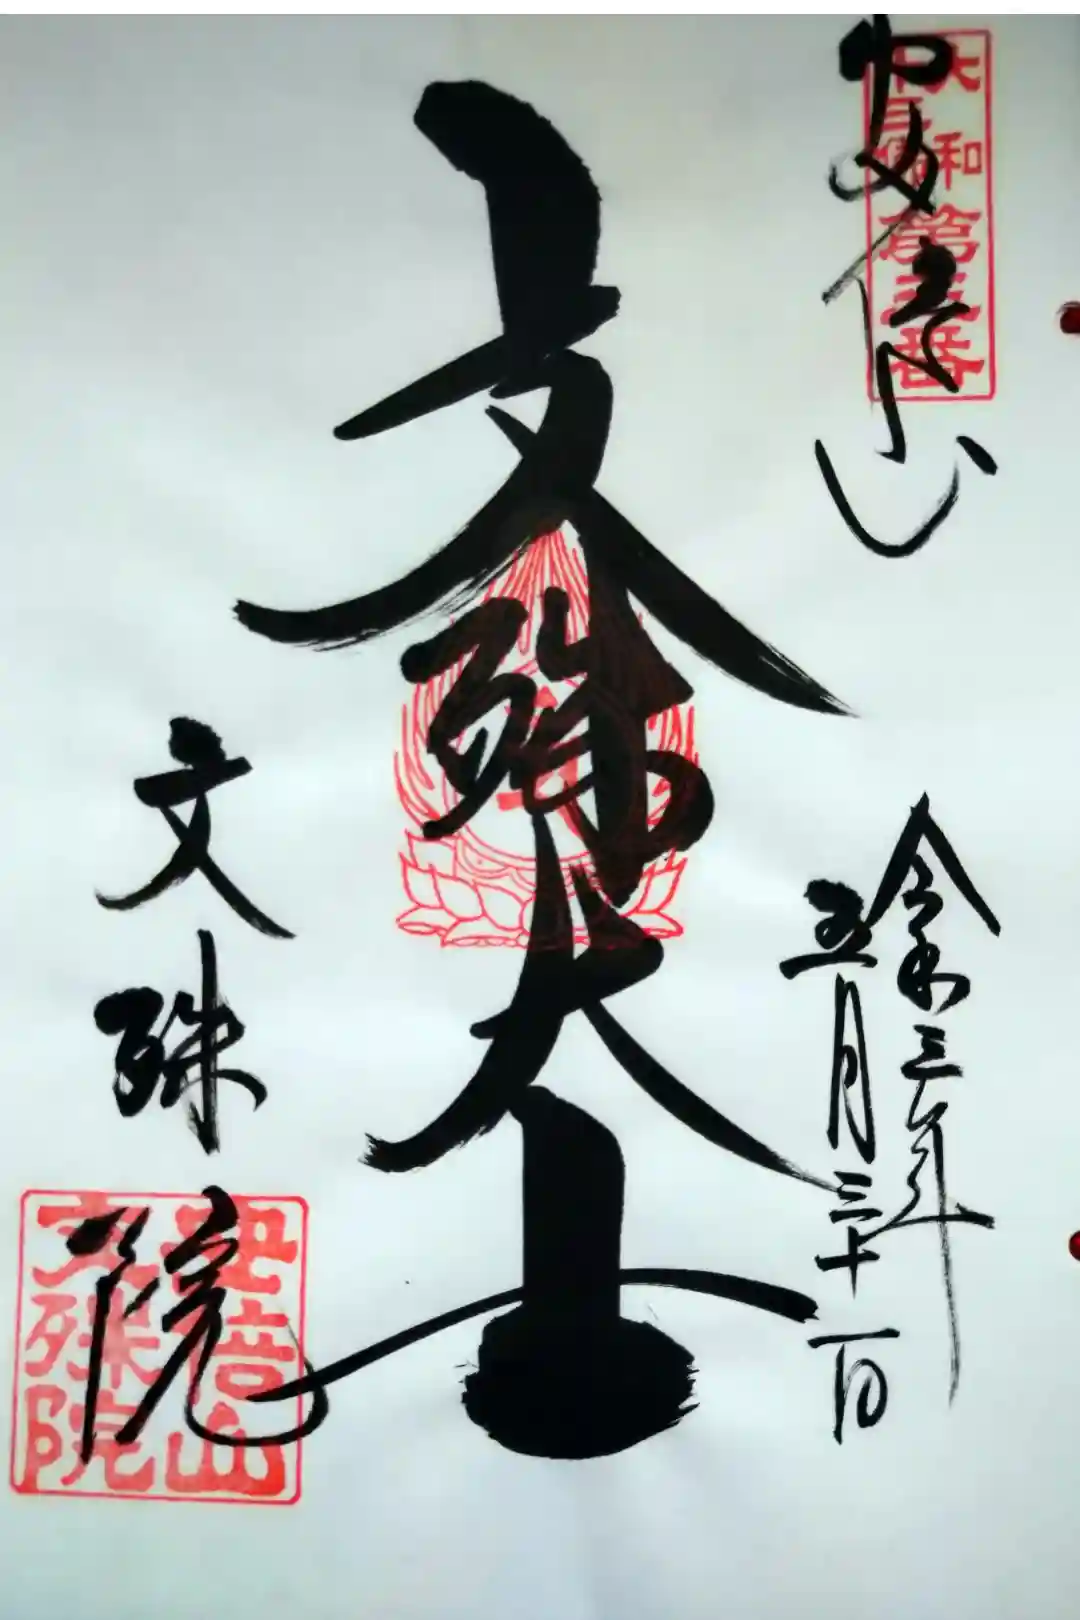 大和十三佛第三番
安倍山
令和三年
五月三十一日
文殊大士
文殊院
安倍山
文殊院